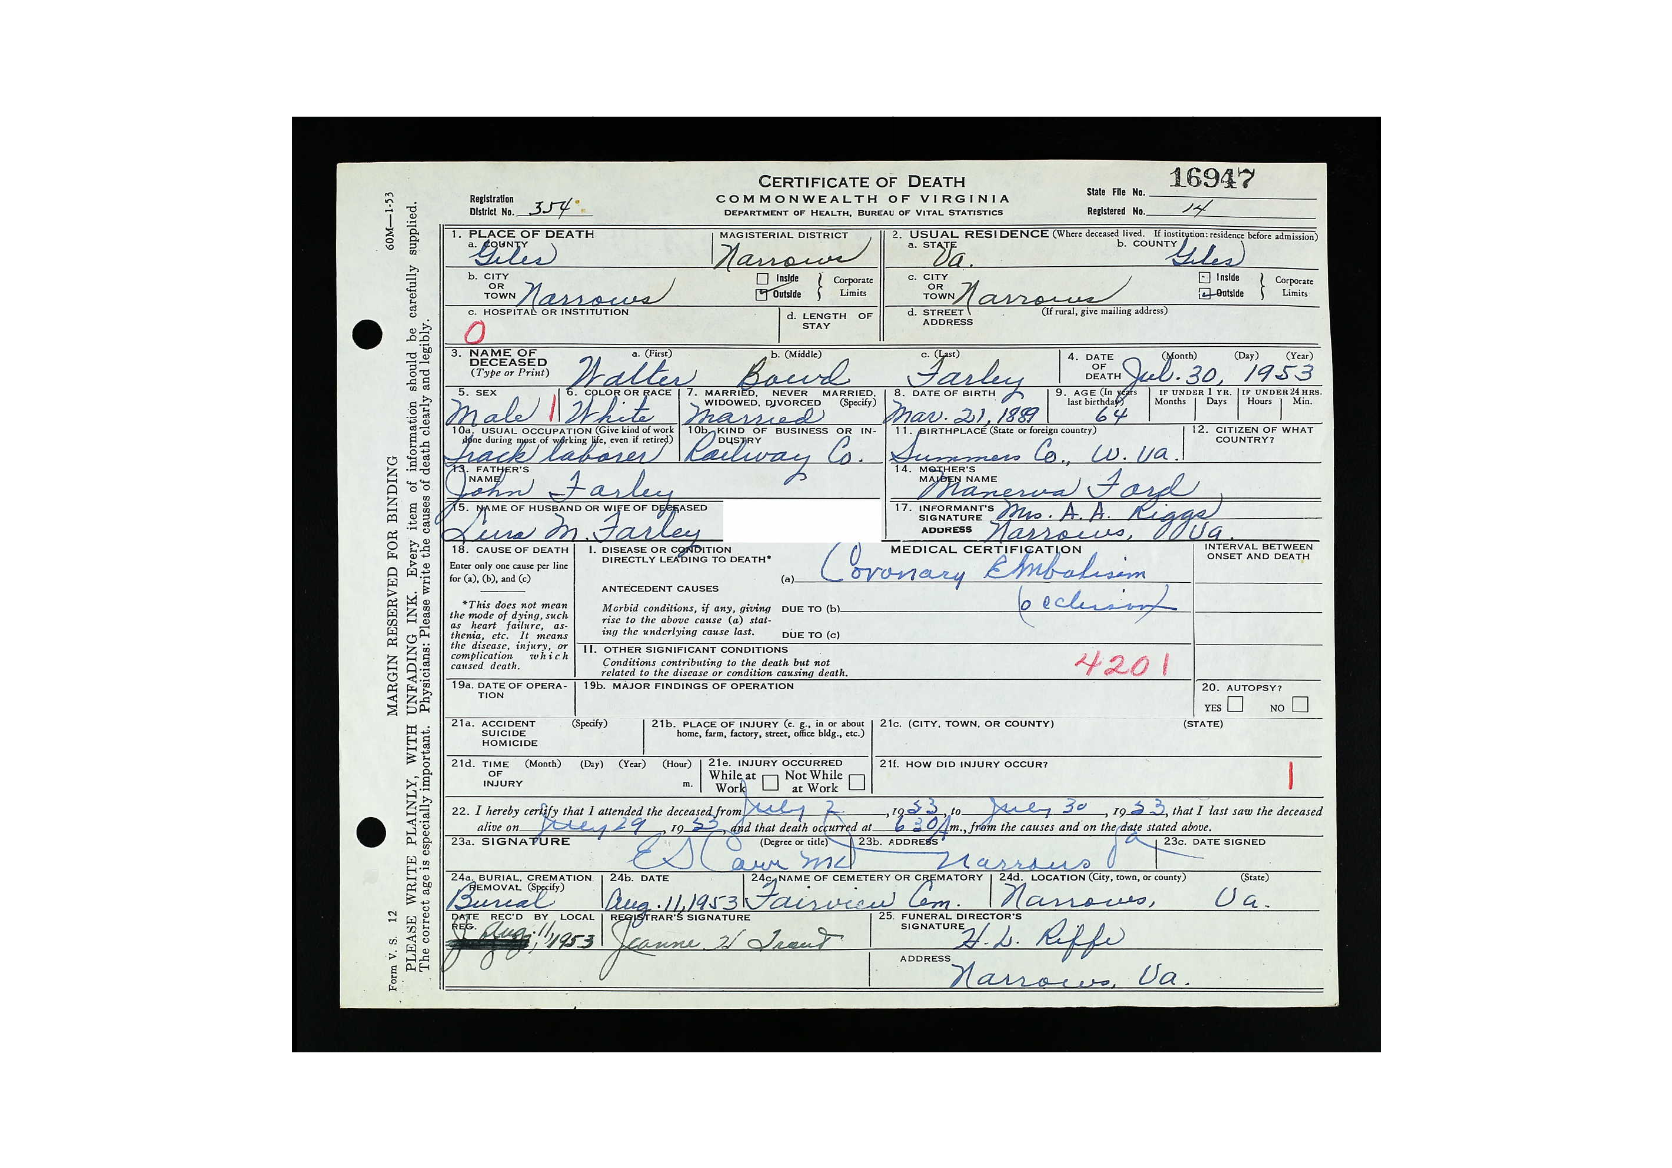 60M—1-53
MARGIN RESERVED FOR BINDING
PLEASE WRITE PLAINLY, WITH UNFADING INK. Every item of information should be carefully supplied.
The correct age is especially important. Physicians: Please write the causes of death clearly and legibly.
Form V. S. 12
CERTIFICATE OF DEATH
COMMONWEALTH OF VIRGINIA
DEPARTMENT OF HEALTH, BUREAU OF VITAL STATISTICS
Registration District No. 354
State File No. 16947
Registered No. 14
1. PLACE OF DEATH
a. COUNTY Giles
MAGISTERIAL DISTRICT Narrows
2. USUAL RESIDENCE (Where deceased lived. If institution: residence before admission)
a. STATE Va. b. COUNTY Giles
b. CITY OR TOWN Narrows
Inside Outside } Corporate Limits
c. CITY OR TOWN Narrows
Inside Outside } Corporate Limits
c. HOSPITAL OR INSTITUTION
0
d. LENGTH OF STAY
d. STREET ADDRESS (If rural, give mailing address)
3. NAME OF DECEASED (Type or Print)
a. (First) b. (Middle) c. (Last)
Walter Farley
4. DATE OF DEATH (Month) (Day) (Year)
Jul. 30, 1953
5. SEX Male 1
6. COLOR OR RACE White
7. MARRIED, NEVER MARRIED, WIDOWED, DIVORCED (Specify) Married
8. DATE OF BIRTH Mar. 21, 1889
9. AGE (In years last birthday) 64
IF UNDER 1 YR. Months Days
IF UNDER 24 HRS. Hours Min.
10a. USUAL OCCUPATION (Give kind of work done during most of working life, even if retired) Track laborer
10b. KIND OF BUSINESS OR INDUSTRY Railway Co.
11. BIRTHPLACE (State or foreign country) Summers Co., W. Va.
12. CITIZEN OF WHAT COUNTRY?
13. FATHER'S NAME John Farley
14. MOTHER'S MAIDEN NAME Manerva Ford
15. NAME OF HUSBAND OR WIFE OF DECEASED
M. Farley
17. INFORMANT'S SIGNATURE Mrs. A. A. Riggs
ADDRESS Narrows, Va.
18. CAUSE OF DEATH
Enter only one cause per line for (a), (b), and (c)
*This does not mean the mode of dying, such as heart failure, asthenia, etc. It means the disease, injury, or complication which caused death.
MEDICAL CERTIFICATION
INTERVAL BETWEEN ONSET AND DEATH
I. DISEASE OR CONDITION DIRECTLY LEADING TO DEATH* (a) Coronary Embolisim
(occlusion)
ANTECEDENT CAUSES
Morbid conditions, if any, giving rise to the above cause (a) stating the underlying cause last.
DUE TO (b)
DUE TO (c)
II. OTHER SIGNIFICANT CONDITIONS
Conditions contributing to the death but not related to the disease or condition causing death.
4201
19a. DATE OF OPERATION
19b. MAJOR FINDINGS OF OPERATION
20. AUTOPSY?
YES NO
21a. ACCIDENT SUICIDE HOMICIDE (Specify)
21b. PLACE OF INJURY (e. g., in or about home, farm, factory, street, office bldg., etc.)
21c. (CITY, TOWN, OR COUNTY) (STATE)
21d. TIME OF INJURY (Month) (Day) (Year) (Hour) m.
21e. INJURY OCCURRED
While at Work Not While at Work
21f. HOW DID INJURY OCCUR?
1
22. I hereby certify that I attended the deceased from July 2, 1953, to July 30, 1953, that I last saw the deceased
alive on July 29, 1953, and that death occurred at 630 A m., from the causes and on the date stated above.
23a. SIGNATURE (Degree or title) 23b. ADDRESS 23c. DATE SIGNED
Narrows Va
24a. BURIAL, CREMATION REMOVAL (Specify) Burial
24b. DATE Aug. 11, 1953
24c. NAME OF CEMETERY OR CREMATORY Fairview Cem.
24d. LOCATION (City, town, or county) (State) Narrows, Va.
DATE REC'D BY LOCAL REG. Aug. 11, 1953
REGISTRAR'S SIGNATURE Jeanne H
25. FUNERAL DIRECTOR'S SIGNATURE H. L. Riffe
ADDRESS Narrows, Va.